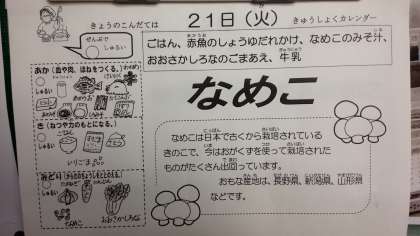 きょうのこんだては
21日（火）
きゅうしょくカレンダー
ぜんぶで
しゅるい
ごはん、赤魚のしょうゆだれかけ、なめこのみそ汁、
おおさかしろなのごまあえ、牛乳
あか（血や肉、ほねをつくる。）
しゅるい
き（ねつや力のもとになる。）
しゅるい
いりごま
みどり（からだのちょうしをととのえる。）
しゅるい
なめこ
おおさかしろな
なめこ
なめこは日本で古くから栽培されている
きのこで、今はおがくずを使って栽培された
ものがたくさん出回っています。
おもな産地は、長野県、新潟県、山形県
などです。